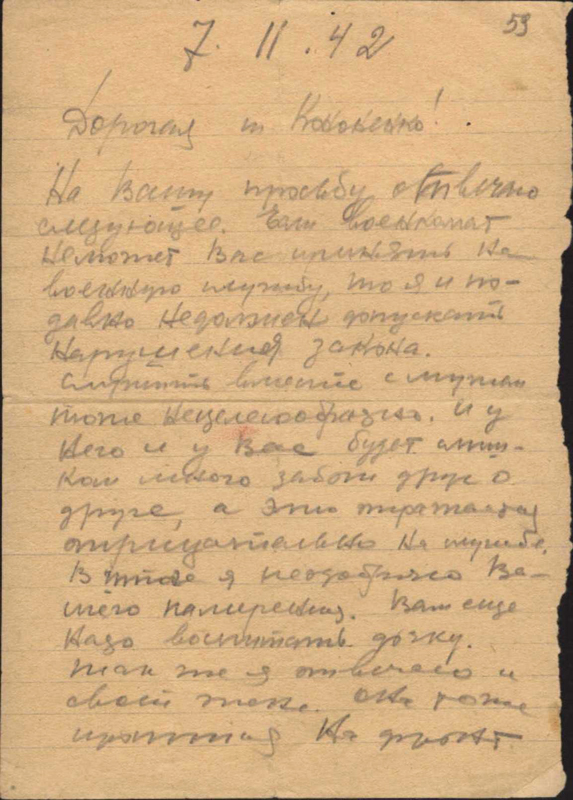 59
7.II.42
Дорогая т Кононенко!
На Вашу просьбу отвечаю
следующее. Если военкомат
неможет Вас принять на
военную службу, то я и по-
давно недолжен допускать
нарушения закона.
Служить вместе с мужем
тоже нецелесообразно. И у
него и у Вас будет слиш-
ком много забот друг о
друге, а это отражается
отрицательно на службе.
В итоге я неодобряю Ва-
шего намерения. Вам еще
надо воспитать дочку.
Так же я отвечаю и
своей жене. Она тоже
просится на фронт.